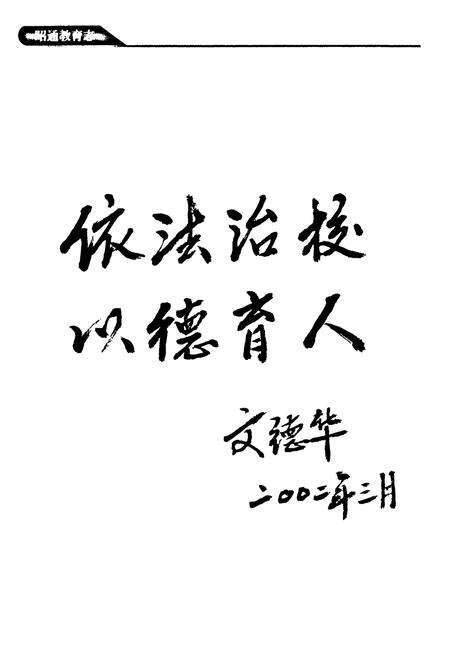 昭通教育志
依法治校
以德育人
文德华
二〇〇二年三月